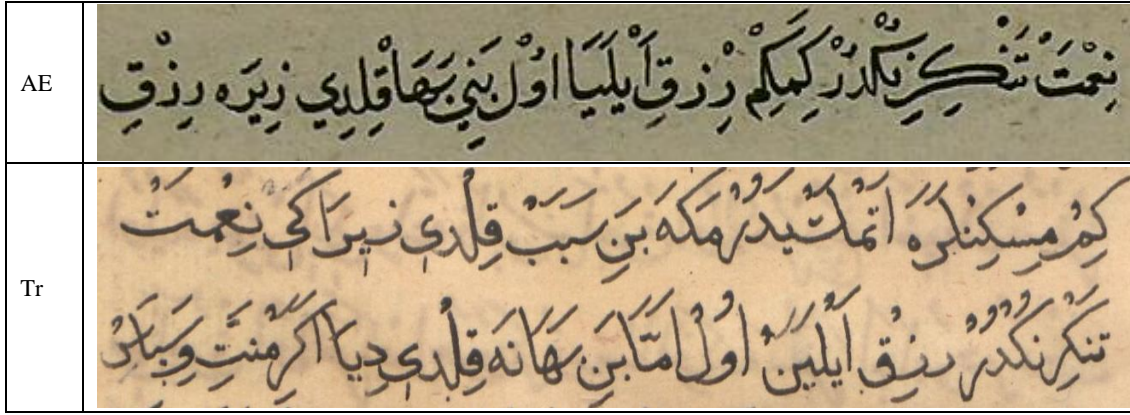 AE
نِعْمَتْ تَنْكِرِنِكْدُرْ كِمَكِمْ رِزْقِ اَيْلَيَا اوُلْ بَنِي بَهَا قِلِدِي زِيَرَه رِزْقِ
Tr
كِمْ مِسْكِنْلَرَه اَتمَكْ يَدُرْمَكَه بَنِ سَبَبْ قِلْدِي زِيرَا كِي نِعْمَتْ
تَنْكِرِنكُدُرْ رِزِق اَيْلَيَنْ اوُلْ امَّا بَنِ بَهَانَه قِلْدِي دِيَا اكَرْ مِنَّتِ